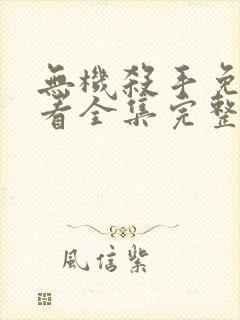 無機殺手免
看全集完整
風信紫